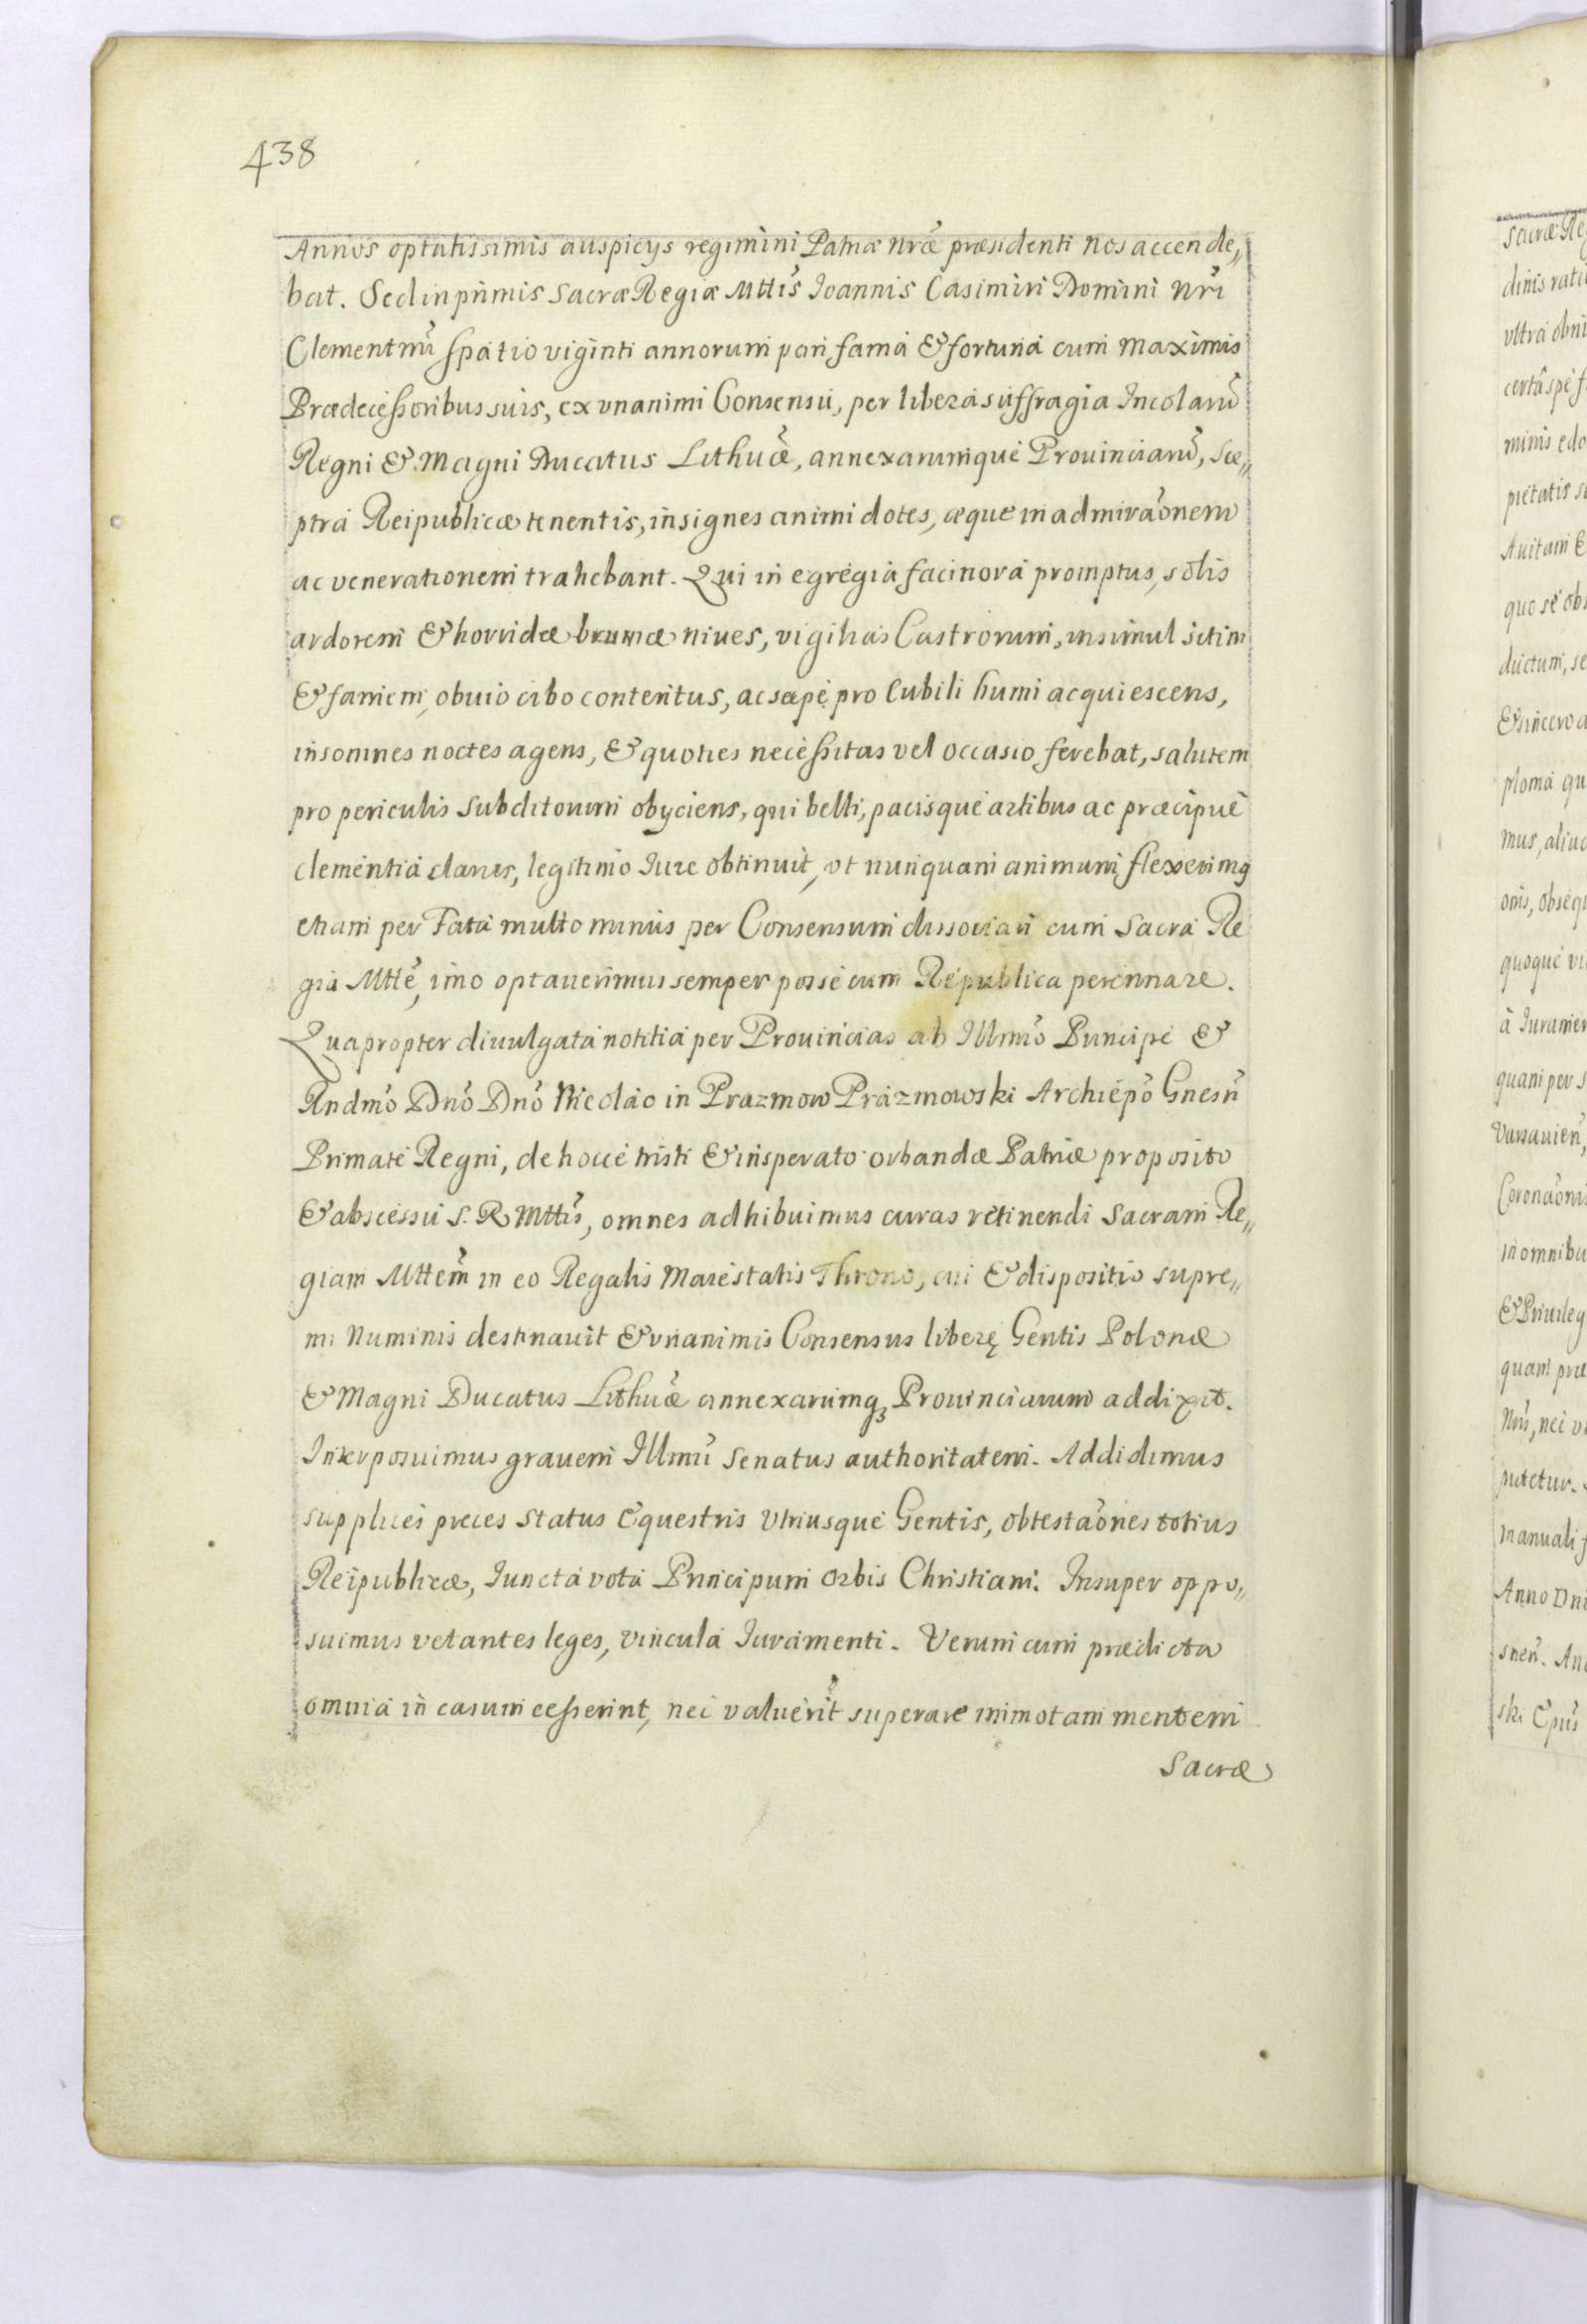 438
Annos optatissimis auspicijs regimini Patriæ nræ præsidenti nos accende„
bat. Sed inprimis Sacræ Regiæ Mttis Ioannis Casimiri Domini nri
Clementmi spatio viginti annorum pari famâ & fortunâ cum maximis
Prædecessoribus suis, ex vnanimi Consensu, per libera suffragia Incolarũ
Regni & Magni Ducatus Lithuæ, annexarumque Prouinciarũ, Sce„
ptra Reipublicæ tenentis, insignes animi dotes, æque in admiraõnem
ac venerationem trahebant. Qui in egregia facinora promptus, solis
ardorem & horridæ brumæ niues, vigilias Castrorum, insimul sitim
& famem, obuio cibo contentus, ac sæpe pro Cubili humi acquiescens,
insomnes noctes agens, & quoties necessitas vel occasio ferebat, salutem
pro periculis Subditorum obijciens, qui belli, pacisque artibus ac præcipuè
clementiâ clarus, legitimo Iure obtinuit, vt nunquam animum flexerimq
etiam per Fata multo minus per Consensum dissociari cum Sacra Re
gia Mtte, imo optauerimus semper posse cum Republica perennare.
Quapropter diuulgata notitia per Prouincias ab Illmo Principe &
Rndmo Dno Dno Nicolao in Prazmow Prazmowski Archiepo Gnesn
Primate Regni, de hocce tristi & insperato orbandæ Patriæ proposito
& abscessu S. R. Mttis, omnes adhibuimus curas retinendi Sacram Re„
giam Mttem in eo Regalis Maiestatis Throno, cui & dispositio supre„
mi Numinis destinauit & vnanimis Consensus liberę Gentis Polonæ
& Magni Ducatus Lithuæ annexarumq₃ Prouinciarum addixit.
Interposuimus grauem Illmi Senatus authoritatem. Addidimus
supplices preces Status Equestris Vtriusque Gentis, obtestaõnes totius
Reipublicæ, Iuncta vota Principum Orbis Christiani. Insuper oppo„
suimus vetantes leges, vincula Iuramenti. Verum cum prædicta
omnia in casum cesserint, nec valuerit superare inimotam mentem
Sacræ
sacræ Re
dinis rati
vltra obni
certâ spe f
minis edo
pietatis s
Auitam &
quo se ob
ductum, se
& sincero a
ploma qu
mus, aliud
onis, obseq
quoque vi
à Iuramen
quam per s
Varsauien,
Coronaõnis
in omnibu
& Priuileg
quam præ
Nris, nec v
putetur.
manuali f
Anno Dni
snen. An
ski Epus